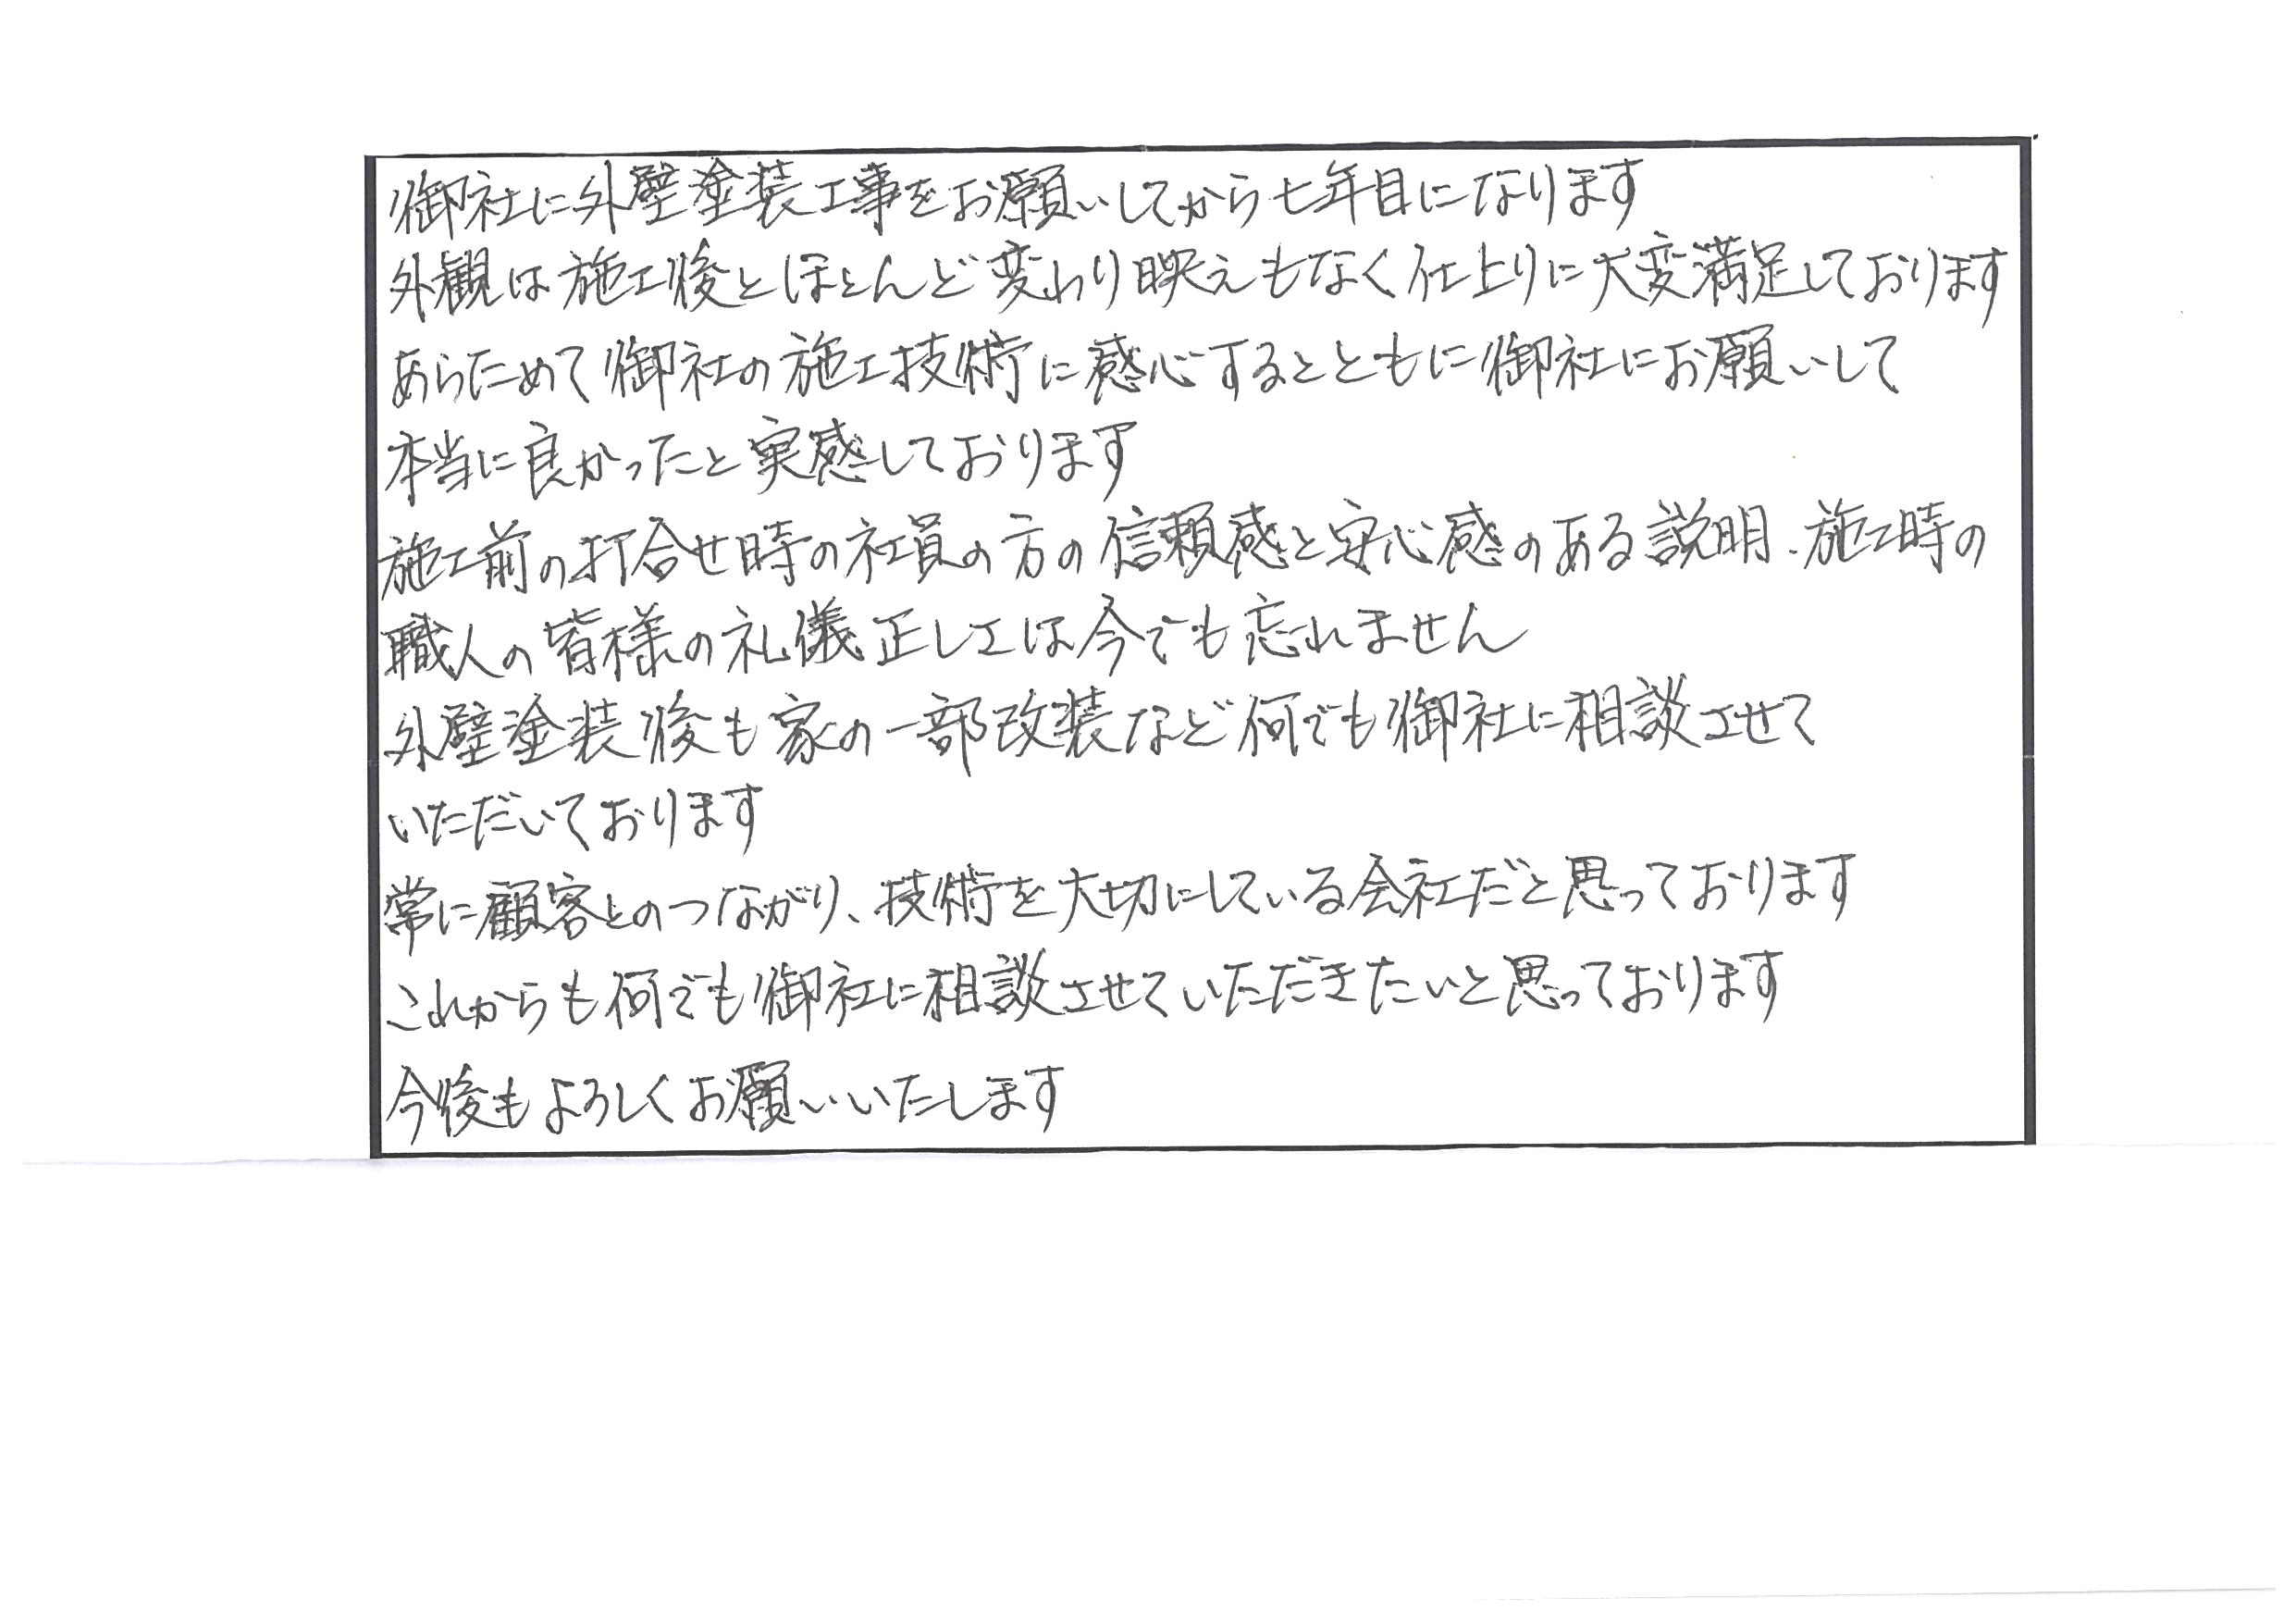 御社に外壁塗装工事をお願いしてから七年目になります
外観は施工後とほとんど変わり映えもなく仕上りに大変満足しております
あらためて御社の施工技術に感心するとともに御社にお願いして
本当に良かったと実感しております
施工前の打合せ時の社員の方の信頼感と安心感のある説明、施工時の
職人の皆様の礼儀正しさは今でも忘れません
外壁塗装後も家の一部改装など何でも御社に相談させて
いただいております
常に顧客とのつながり、技術を大切にしている会社だと思っております
これからも何でも御社に相談させていただきたいと思っております
今後もよろしくお願いいたします